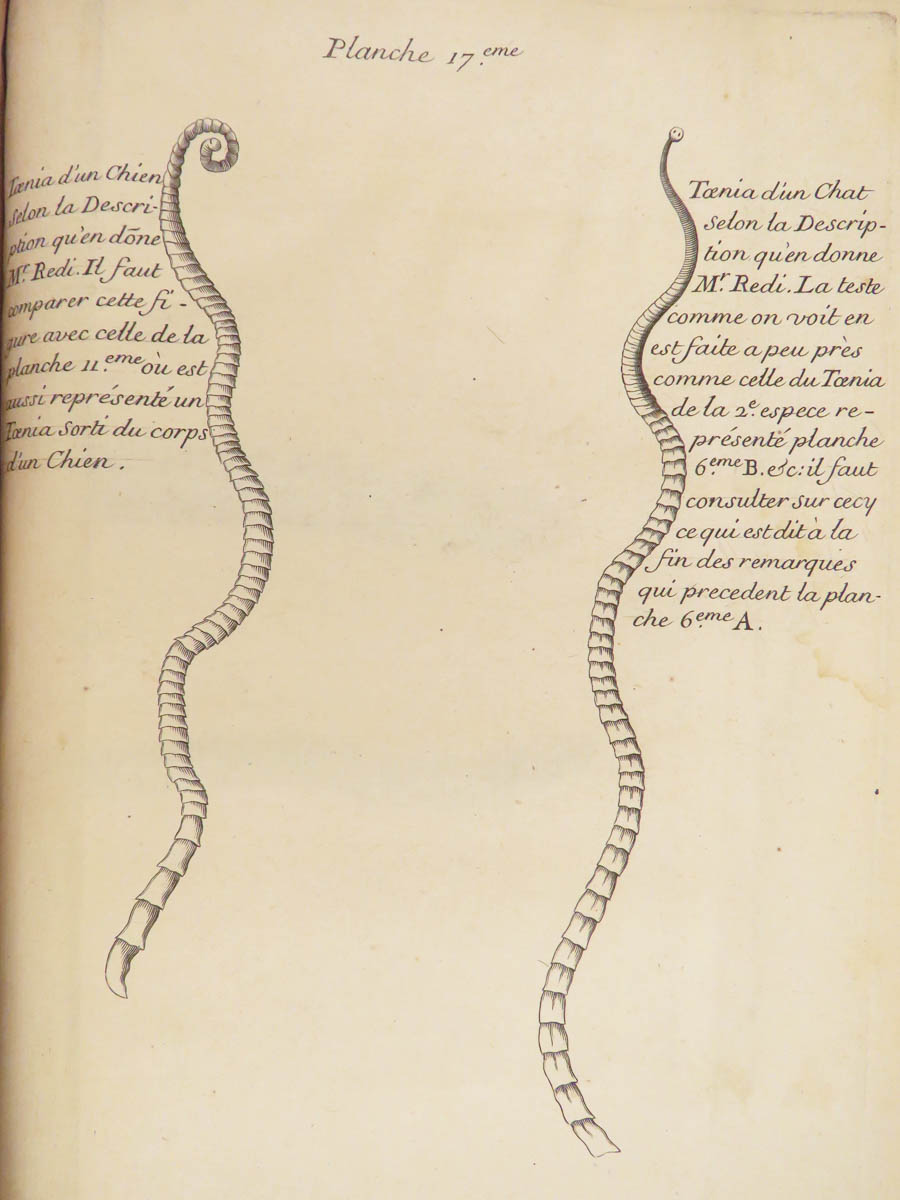 Planche 17.eme
Tœnia d'un Chien
selon la Descri-
ption qu'en dōne
Mr. Redi. Il faut
comparer cette fi-
gure avec celle de la
planche 11.eme où est
aussi représenté un
Tœnia sorti du corps
d'un Chien.
Tœnia d'un Chat
selon la Descrip-
tion qu'en donne
Mr. Redi. La teste
comme on voit en
est faite a peu près
comme celle du Tœnia
de la 2e. espece re-
présenté planche
6.eme B. &c: il faut
consulter sur cecy
ce qui est dit à la
fin des remarques
qui precedent la plan-
che 6.eme A.